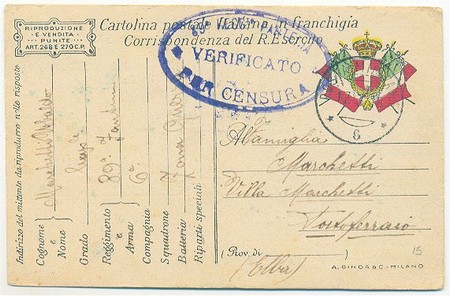 RIPRODUZIONE
E VENDITA
PUNITE
ART. 268 E 270 C.P.
Cartolina postale italiana in franchigia
Corrispondenza del R. Esercito
VERIFICATO
PER CENSURA
6
Indirizzo del mittente da riprodursi nelle risposte
Cognome e Nome Marchetti
Grado
Reggimento e Arma 89°
Compagnia 6a
Squadrone Zona
Batteria
Riparti speciali
Alla famiglia
Marchetti
Villa Marchetti
Portoferraio
(Prov. di
(Elba)
15
A. GINDA & C. - MILANO